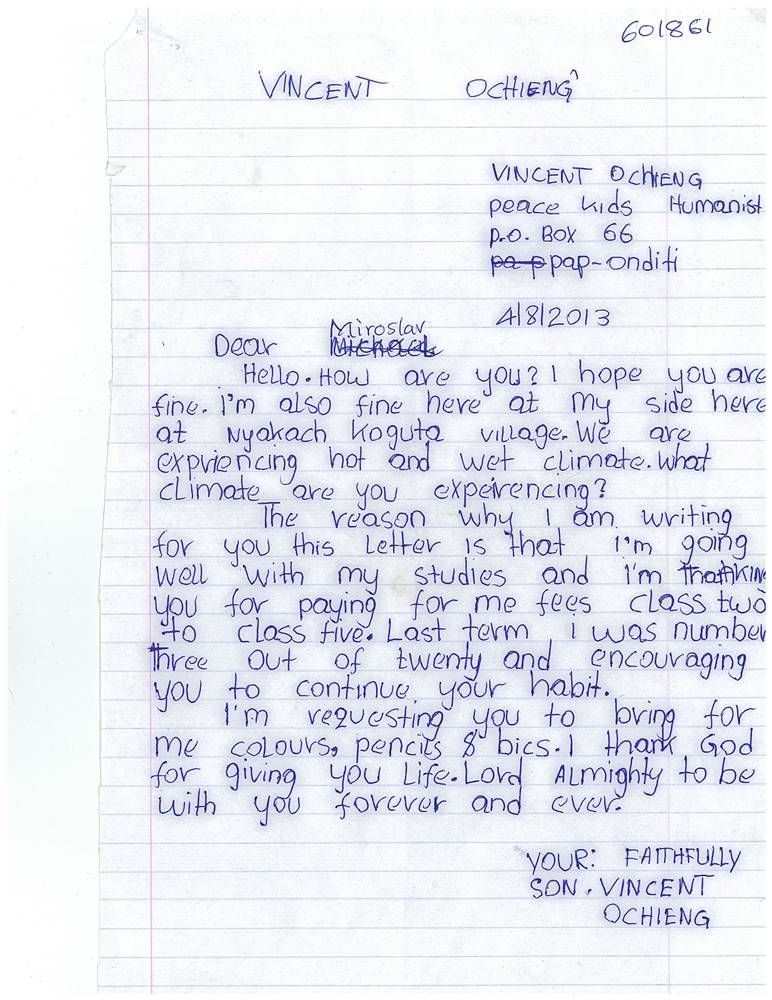 601861
VINCENT OCHIENG
VINCENT OCHIENG
peace kids Humanist
P.O. BOX 66
pa p pap-onditi
4/8/2013
Miroslav
Dear Michael
Hello. How are you? I hope you are
fine. I'm also fine here at my side here
at Nyakach Koguta village. We are
expriencing hot and wet climate. what
climate are you expeirencing?
The reason why I am writing
for you this letter is that I'm going
well with my studies and i'm
you for paying for me fees class two
to class five. Last term I was number
three out of twenty and encouraging
you to continue your habit.
I'm requesting you to bring for
me colours, pencils & bics. I thank God
for giving you Life. Lord Almighty to be
with you forever and ever.
YOUR: FAITHFULLY
SON. VINCENT
OCHIENG